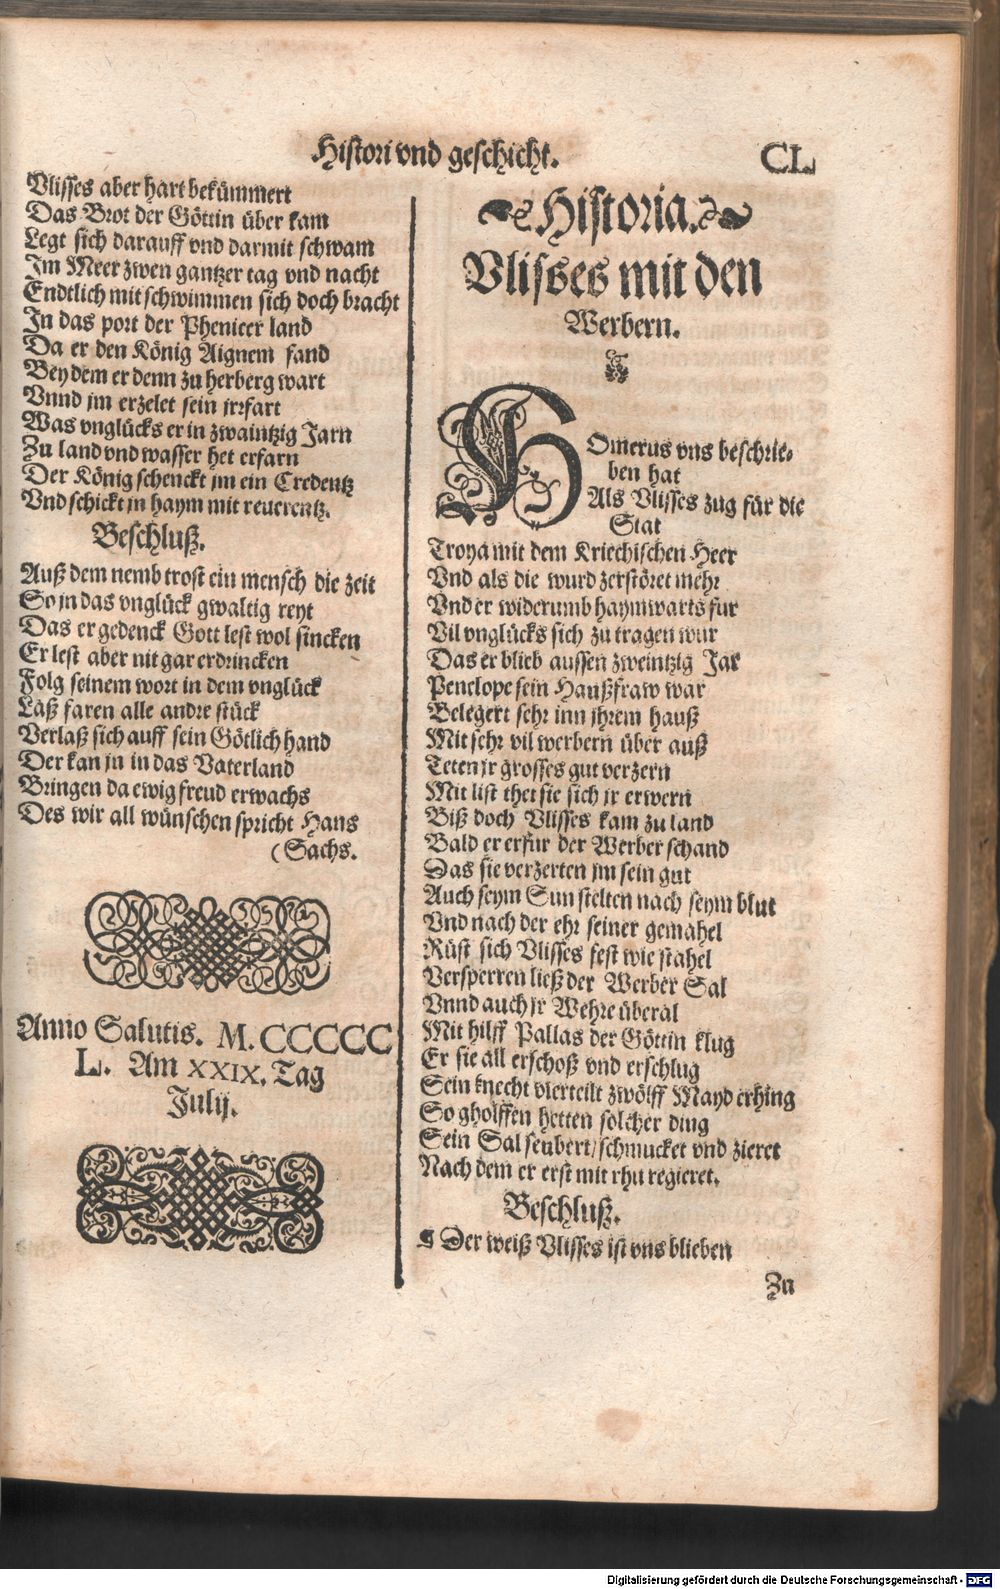 Histori vnd geschicht.
CL
Vlisses aber hart bekümmert
Das Brot der Göttin über kam
Legt sich darauff vnd darmit schwam
Im Meer zwen gantzer tag vnd nacht
Endtlich mit schwimmen sich doch bracht
In das port der Phenicer land
Da er den König Aignem fand
Bey dem er denn zu herberg wart
Vnnd jm erzelet sein jrrfart
Was vnglücks er in zwaintzig Jarn
Zu land vnd wasser het erfarn
Der König schenckt jm ein Credentz
Vnd schickt jn haym mit reuerentz.
Beschluß.
Auß dem nemb trost ein mensch die zeit
So jn das vnglück gwaltig reyt
Das er gedenck Gott lest wol sincken
Er lest aber nit gar erdrincken
Folg seinem wort in dem vnglück
Laß faren alle andre stück
Verlaß sich auff sein Götlich hand
Der kan jn in das Vaterland
Bringen da ewig freud erwachs
Des wir all wünschen spricht Hans
(Sachs.
Anno Salutis. M. CCCCC
L. Am XXIX. Tag
Julij.
Historia.
Vlisses mit den
Werbern.
HOmerus vns beschrie-
ben hat
Als Vlisses zug für die
Stat
Troya mit dem Kriechischen Heer
Vnd als die wurd zerstöret mehr
Vnd er widerumb haymwarts fur
Vil vnglücks sich zu tragen wur
Das er blieb aussen zweintzig Jar
Penelope sein Haußfraw war
Belegert sehr inn jhrem hauß
Mit sehr vil werbern über auß
Teten jr grosses gut verzern
Mit list thet sie sich jr erwern
Biß doch Vlisses kam zu land
Bald er erfur der Werber schand
Das sie verzerten jm sein gut
Auch seym Sun stelten nach seym blut
Vnd nach der ehr seiner gemahel
Rüst sich Vlisses fest wie stahel
Versperren ließ der Werber Sal
Vnnd auch jr Wehre überal
Mit hilff Pallas der Göttin klug
Er sie all erschoß vnd erschlug
Sein knecht vierteilt zwölff Mayd erhing
So gholffen hetten solcher ding
Sein Sal seubert/schmucket vnd zieret
Nach dem er erst mit rhu regieret.
Beschluß.
Der weiß Vlisses ist vns blieben
Zu
Digitalisierung gefördert durch die Deutsche Forschungsgemeinschaft - DFG